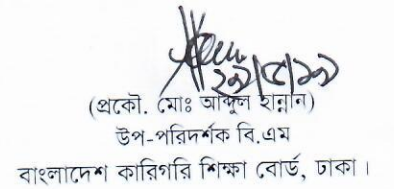 (প্রকৌ. মোঃ আব্দুল হান্নান)
উপ-পরিদর্শক বি.এম
বাংলাদেশ কারিগরি শিক্ষা বোর্ড, ঢাকা।